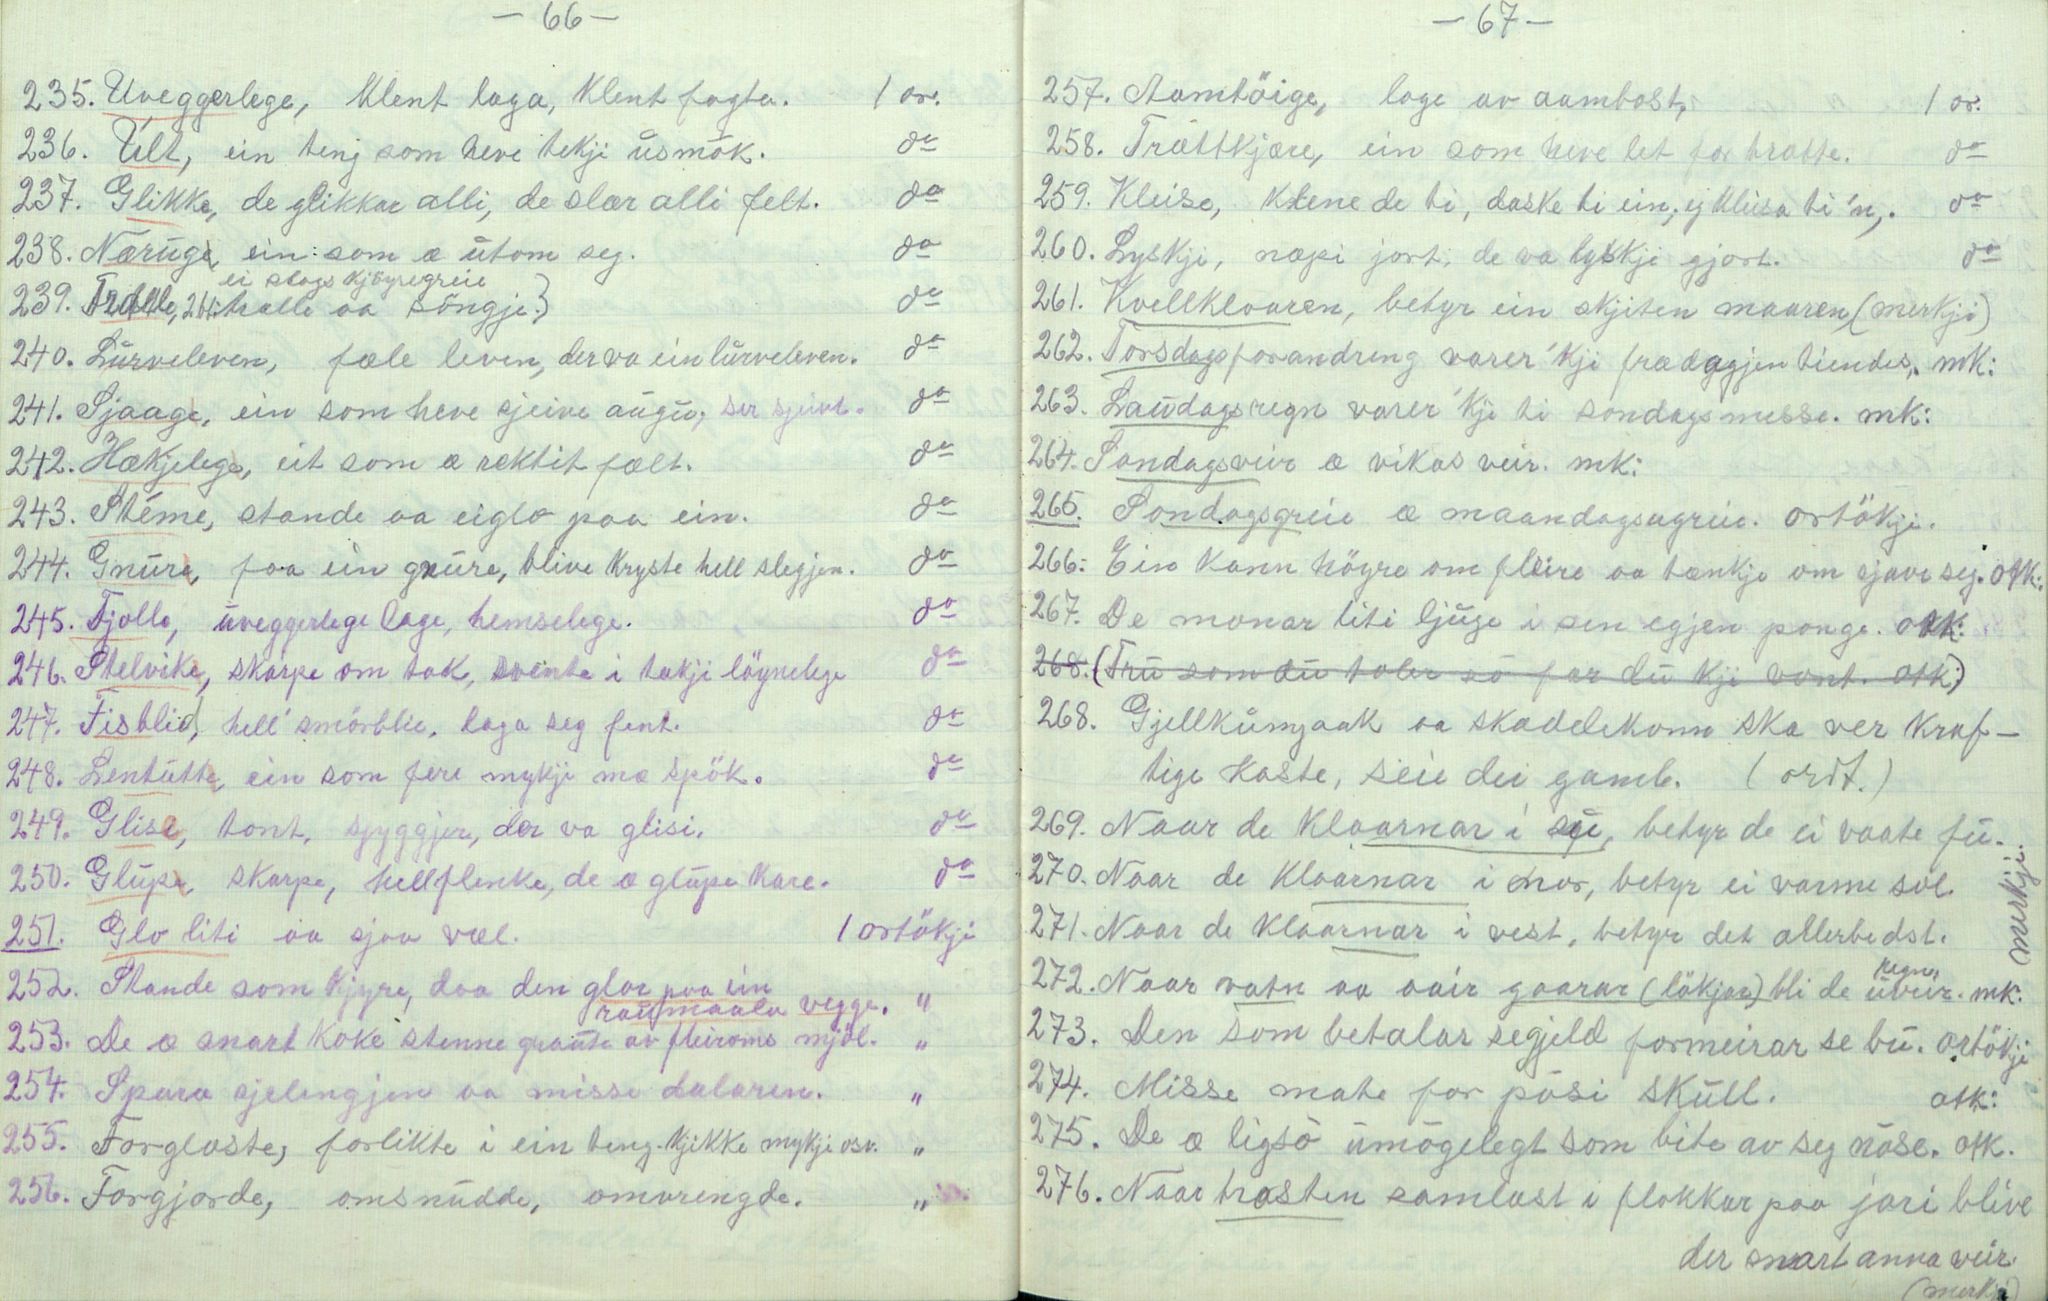 — 66 —
235. Uveggerlege, klent laga, klent fagta. 1 or.
236. Ült, ein tenj som heve tekji üsmök. do
237. Glikke, de glikkar alli, de slær alli felt. do
238. Nærüge, ein som æ ütom seg. do
ei slags kjöyregreie
239. Tralle, tralle aa söngje.) do
240. Lürveleven, fæle leven, der va ein lürveleven. do
241. Sjaage, ein som heve sjeive augü, ser sjeivt. do
242. Hækjelege, eit som æ rektit fælt. do
243. Stéme, stande aa eiglo paa ein. do
244. Gnüre, faa ein gnüre, blive kryste hell slegjen. do
245. Tjollo, üveggerlege lage, hemselege. do
246. Stelvike, skarpe om tak, svinte i takji löynelege do
247. Fisblid, hell' smörblie, laga seg fint. do
248. Lentütte, ein som fere mykji mæ spök. do
249. Glise, tont, spyggjer, der va glisi. do
250. Glüpe, skarpe, hell flenke, de æ glüpe kare. do
251. Glo liti aa sjaa væl. 1 ortökji
252. Stande som kjyre, daa den glor paa ein
raümaala vegge. "
253. De æ snart koke stenne graüte av fleiroms mjöl. "
254. Spara sjelengjen aa misse dalaren. "
255. Forglaste, forlikte i ein teng. kjikke mykji osv. "
256. Forgjorde, omsnüdde, omvrengde. "
— 67 —
257. Aamtöige, lage av aambost, 1 or.
258. Trættkjære, ein som heve let for trætte. do
259. Kleise, klene de ti, daske ti ein, ej kleisa ti 'n,. do
260. Lyskji, næpi jort, de va lyskji gjort. do
261. Kvellklaaren, betyr ein skjiten maaren (merkji)
262. Torsdagsforandreng varer 'kji frædagjen tiendes, mk:
263. Laüdagsregn varer 'kji ti sondagsmesse. mk:
264. Sondagsveir æ vikas veir. mk:
265. Sondagsgreie æ maandagsugreie. ortökji.
266. Ein kann höyre om fleire aa tænkje om sjave seg. otk:
267. De monar liti ljüge i sen egjen ponge. otk:
268. (Trü som dü taler so far dü kji vont. otk:)
268. Gjellkümjaak aa skadelekonn ska ver kraf-
tige kaste, seie dei gamb. (ordt.)
269. Naar de klaarnar i sü, betyr de ei vaate fü.
270. Naar de klaarnar i nor, betyr ei varme sol
271. Naar de klaarnar i vest, betyr det allerbedst.
merkji.
regn,
272. Naar vatn aa aair gaarar (lökjar) bli de üveir. mk:
273. Den som betalar segjeld formeirar se bü. ortökji
274. Misse mate for posi sküll. otk:
275. De æ ligsö ümögelegt som bite av seg nase. otk.
276. Naar trasten samlast i flokkar paa jori blive
der snart anna veir.
(merkji)